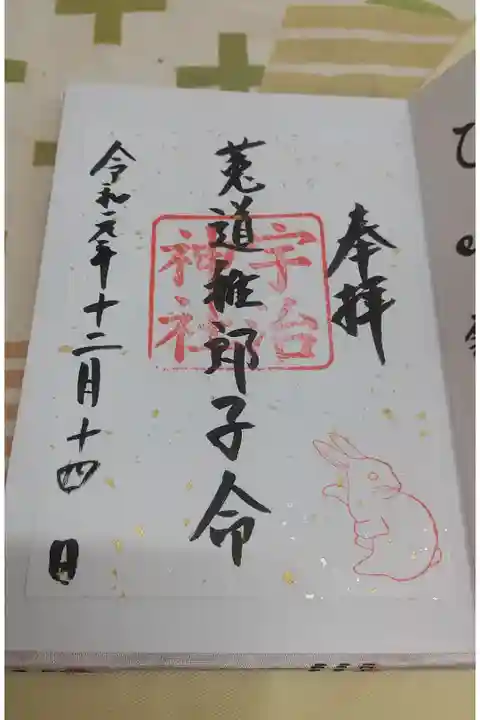 奉拝
宇治
神社
菟道稚郎子命
令和元年十二月十四日
ひ